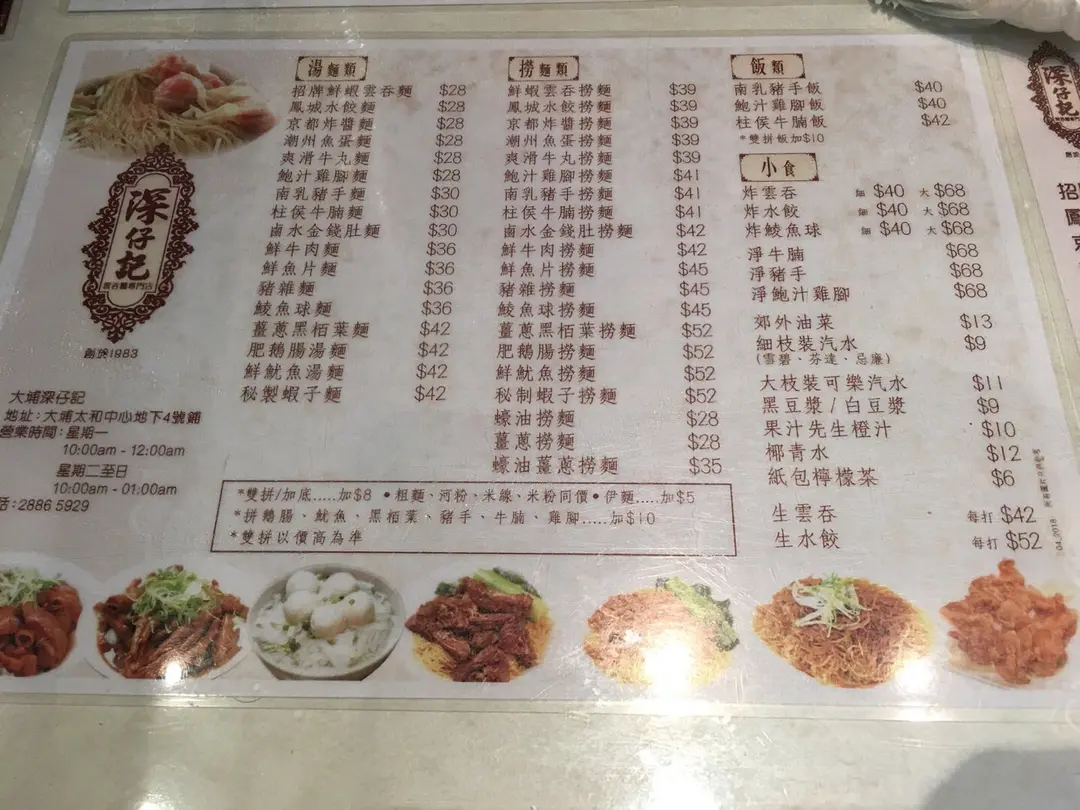 深仔記
雲吞麵專門店
創於1983
大埔深仔記
地址：大埔太和中心地下4號鋪
營業時間：星期一
10:00am - 12:00am
星期二至日
10:00am - 01:00am
話：2886 5929
湯麵類
招牌鮮蝦雲吞麵 $28
鳳城水餃麵 $28
京都炸醬麵 $28
潮州魚蛋麵 $28
爽滑牛丸麵 $28
鮑汁雞腳麵 $28
南乳豬手麵 $30
柱侯牛腩麵 $30
鹵水金錢肚麵 $30
鮮牛肉麵 $36
鮮魚片麵 $36
豬雜麵 $36
鯪魚球麵 $36
薑蔥黑栢葉麵 $42
肥鵝腸湯麵 $42
鮮魷魚湯麵 $42
秘製蝦子麵 $42
撈麵類
鮮蝦雲吞撈麵 $39
鳳城水餃撈麵 $39
京都炸醬撈麵 $39
潮州魚蛋撈麵 $39
爽滑牛丸撈麵 $39
鮑汁雞腳撈麵 $41
南乳豬手撈麵 $41
柱侯牛腩撈麵 $41
鹵水金錢肚撈麵 $42
鮮牛肉撈麵 $42
鮮魚片撈麵 $45
豬雜撈麵 $45
鯪魚球撈麵 $45
薑蔥黑栢葉撈麵 $52
肥鵝腸撈麵 $52
鮮魷魚撈麵 $52
秘制蝦子撈麵 $52
蠔油撈麵 $28
薑蔥撈麵 $28
蠔油薑蔥撈麵 $35
*雙拼/加底.....加$8 •粗麵、河粉、米線、米粉同價•伊麵....加$5
*拼鵝腸、魷魚、黑栢葉、豬手、牛腩、雞腳.....加$10
*雙拼以價高為準
飯類
南乳豬手飯 $40
鮑汁雞腳飯 $40
柱侯牛腩飯 $42
*雙拼飯加$10
小食
炸雲吞 細 $40 大 $68
炸水餃 細 $40 大 $68
炸鯪魚球 細 $40 大 $68
淨牛腩 $68
淨豬手 $68
淨鮑汁雞腳 $68
郊外油菜 $13
細枝裝汽水 $9
(雪碧、芬達、忌廉)
大枝裝可樂汽水 $11
黑豆漿/白豆漿 $9
果汁先生橙汁 $10
椰青水 $12
紙包檸檬茶 $6
生雲吞 每打 $42
生水餃 每打 $52
04_2018
深仔記
招
鳳
京